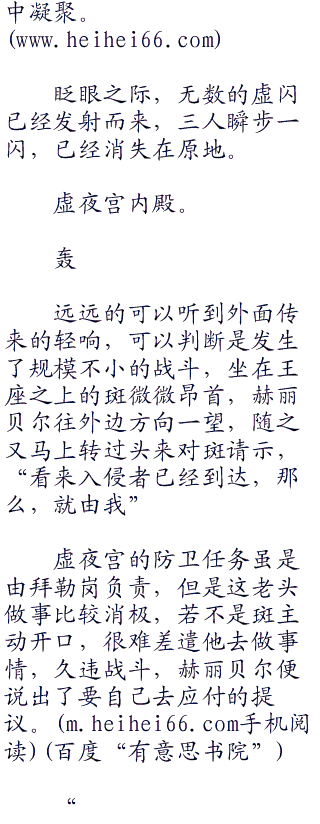 中凝聚。
(www.heihei66.com)
眨眼之际，无数的虚闪
已经发射而来，三人瞬步一
闪，已经消失在原地。
虚夜宫内殿。
轰
远远的可以听到外面传
来的轻响，可以判断是发生
了规模不小的战斗，坐在王
座之上的斑微微昂首，赫丽
贝尔往外边方向一望，随之
又马上转过头来对斑请示，
“看来入侵者已经到达，那
么，就由我”
虚夜宫的防卫任务虽是
由拜勒岗负责，但是这老头
做事比较消极，若不是斑主
动开口，很难差遣他去做事
情，久违战斗，赫丽贝尔便
说出了要自己去应付的提
议。(m.heihei66.com手机阅
读)(百度“有意思书院”)
“